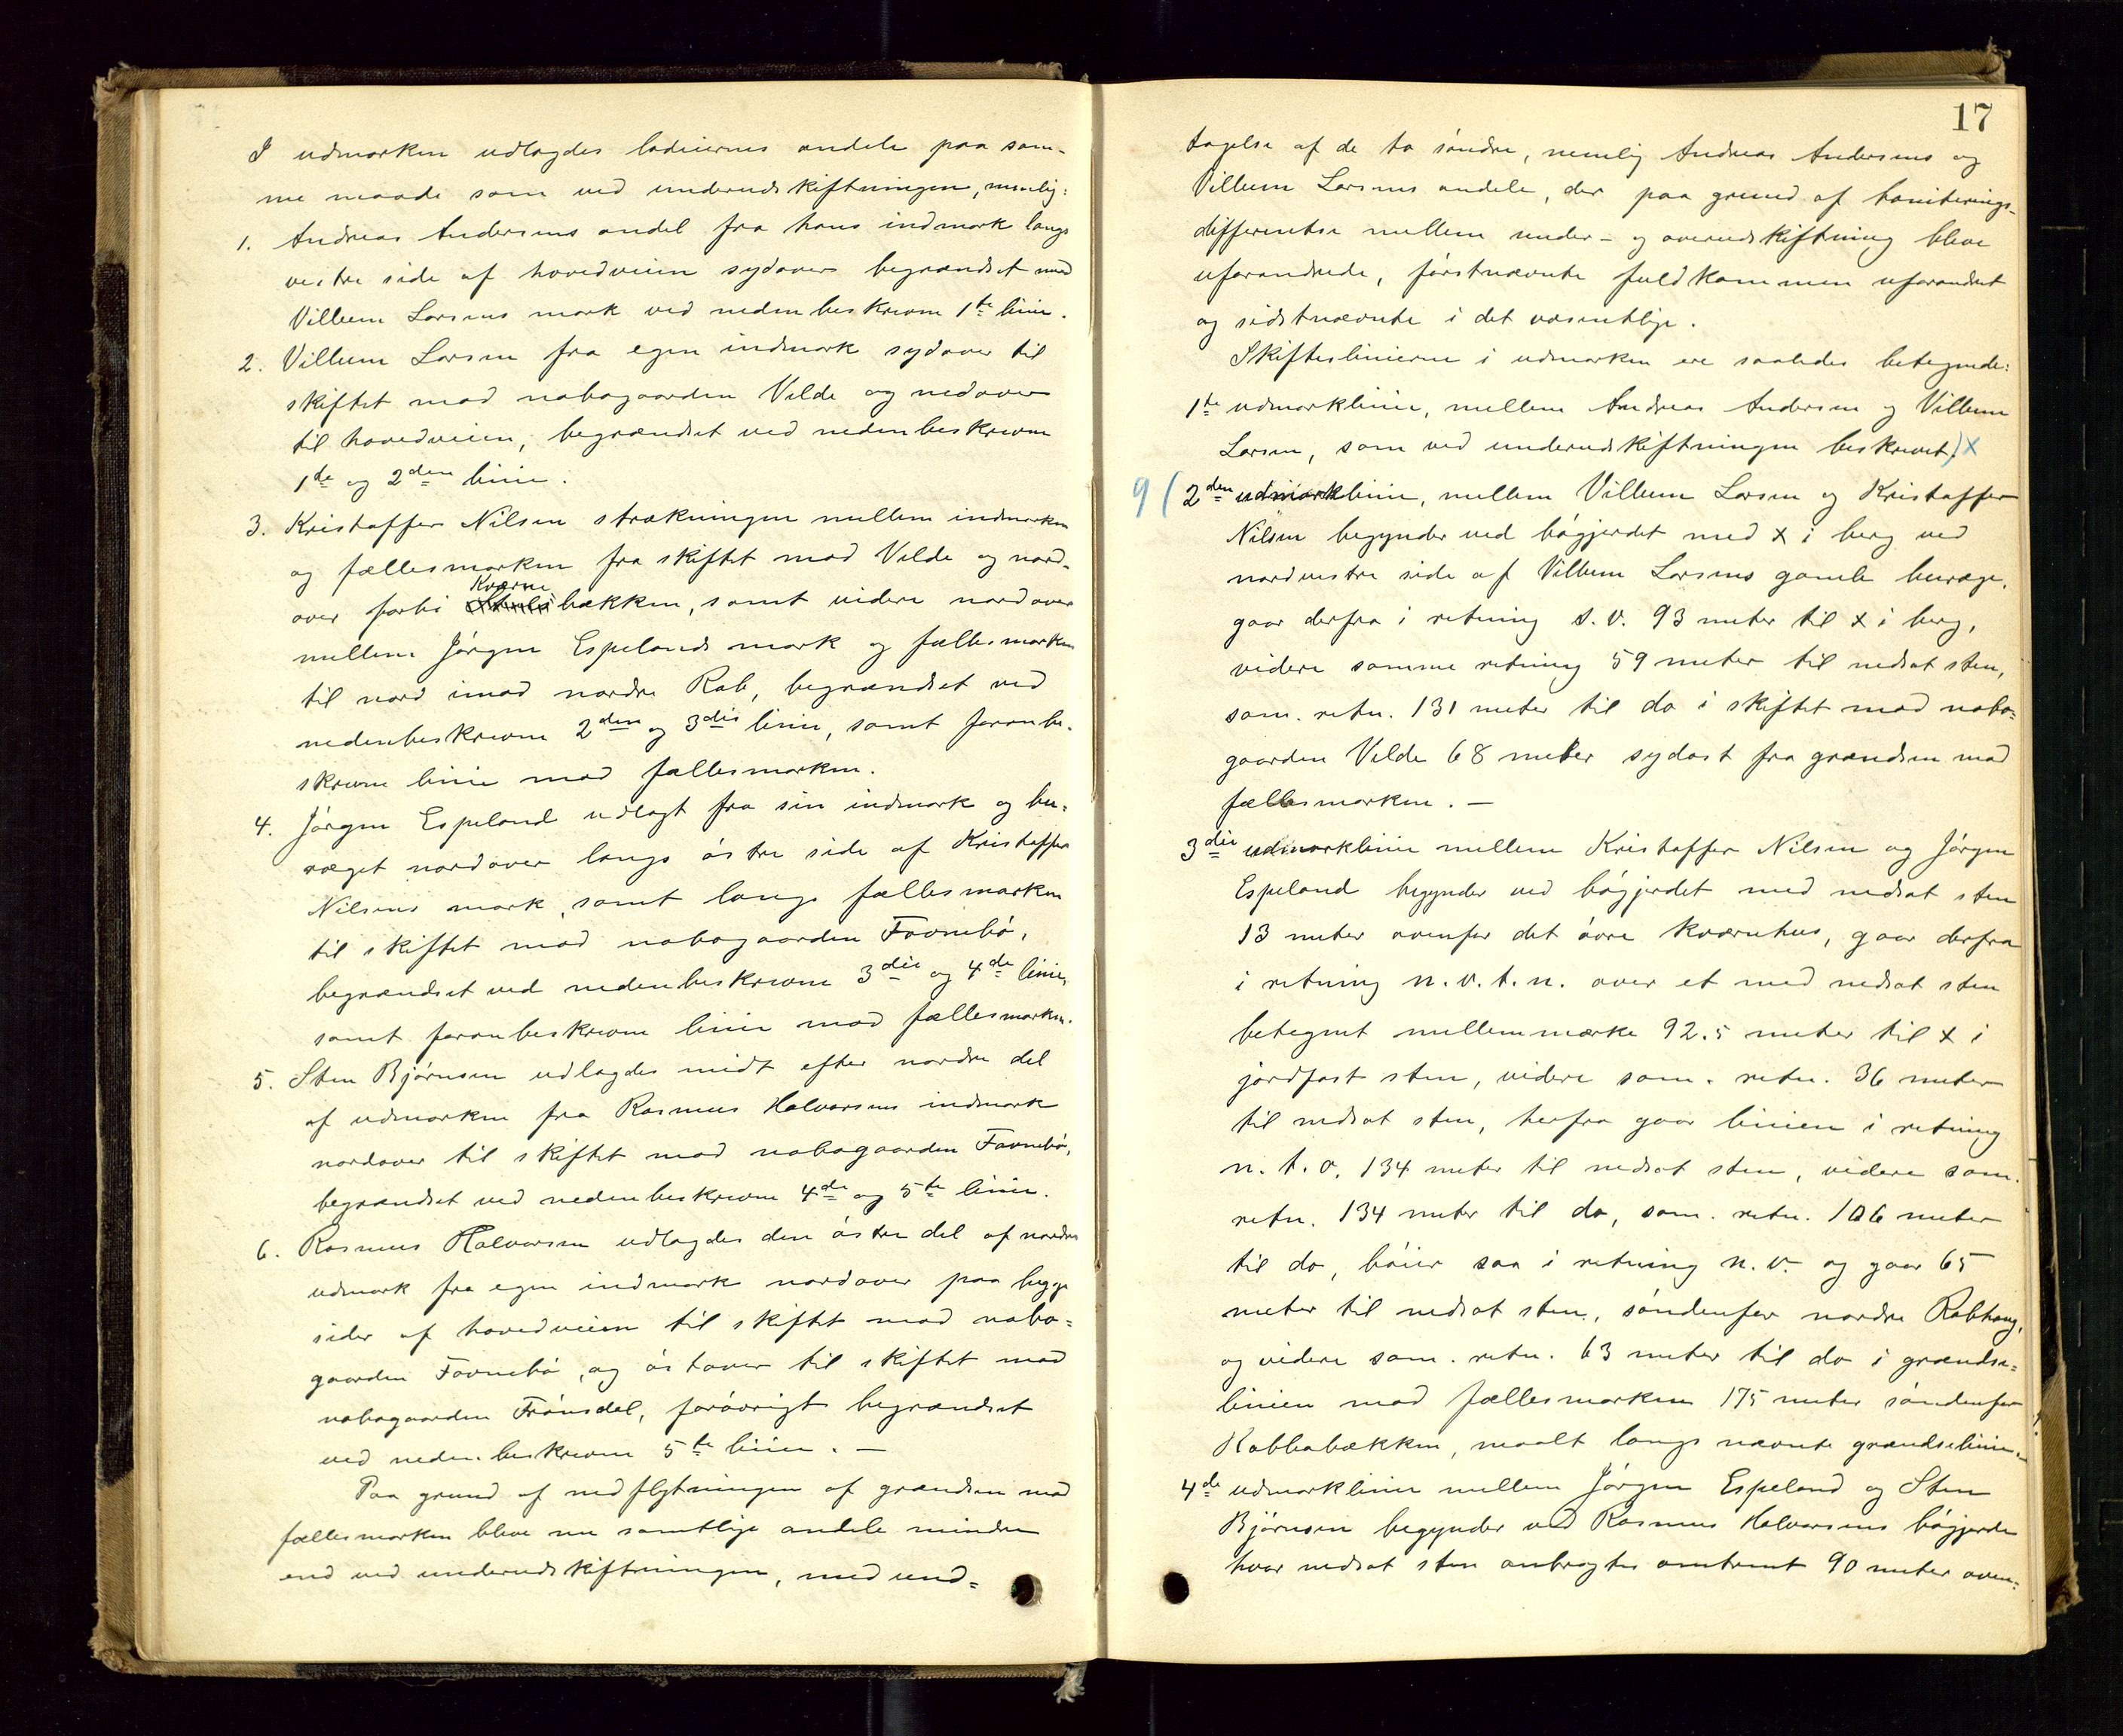 I udmarken udlagdes lodeiernes andele paa sam-
me maade som ved underudskiftningen, nemlig:
1. Andreas Andersens andel fra hans indmark langs
vestre side af hovedveien sydover begrændset mod
Villum Larsens mark ved nedenbeskrevne 1ste linie.
2. Villum Larsen fra egen indmark sydover til
skiftet mod nabogaarden Velde og nedover
til hovedveien, begrændset ved nedenbeskrevne
1ste og 2den linie.
3. Kristoffer Nilsen strækningen mellem indmarken
og fællesmarken fra skiftet mod Velde og nord-
over forbi Kværnebækken, samt videre nordover
mellem Jørgen Espelands mark og fællesmarken
til nord imod nordre Rab, begrændset ved
nedenbeskrevne 2den og 3die linie, samt foranbe-
skrevne linie mod fællesmarken.
4. Jørgen Espeland udlagt fra sin indmark og bu-
ræget nordover langs østre side af Kristoffer
Nilsens mark, samt langs fællesmarken
til skiftet mod nabogaarden Fovnebø,
begrændset ved nedenbeskrevne 3die og 4de linie,
samt foranbeskrevne linie mod fællesmarken.
5. Sten Bjørnsen udlagdes midt efter nordre del
af udmarken fra Rasmus Halvorsens indmark
nordover til skiftet mod nabogaarden Fovnebø,
begrændset ved nedenbeskrevne 4de og 5te linie.
6. Rasmus Halvorsen udlagdes den østre del af nordre
udmark fra egen indmark nordover paa begge
sider af hovedveien til skiftet mod nabo=
gaarden Fovnebø, og østover til skiftet mod
nabogaarden Frønsdal, forøvrigt begrændset
ved nedenbeskrevne 5te linie. —
Paa grund af nedflytningen af grændsen mod
fællesmarken bleve nu samtlige andele mindre
end ved underudskiftningen, med und=
17
tagelse af de to søndre, nemlig Andreas Andersens og
Villum Larsens andele, der paa grund af boniterings-
differentse mellem under- og overudskiftning bleve
uforandrede, førstnævnte fuldkommen uforandret
og sidstnævnte i det væsentlige.
Skifteslinierne i udmarken ere saaledes betegnede:
1ste udmarklinie, mellem Andreas Andersen og Villum
Larsen, som ved underudskiftningen beskrevet.) x
9 ( 2den udmarklinie, mellem Villum Larsen og Kristoffer
Nilsen begynder ved bøgjerdet med x i berg ved
nordvestre side af Villum Larsens gamle buræge,
gaar derfra i retning s.v. 93 meter til x i berg,
videre samme retning 59 meter til nedsat sten,
sam. retn. 131 meter til do i skiftet mod nabo=
gaarden Velde 68 meter sydøst fra grændsen mod
fællesmarken. —
3die udmarklinie mellem Kristoffer Nilsen og Jørgen
Espeland begynder ved bøgjerdet med nedsat sten
13 meter ovenfor det øvre kværnhus, gaar derfra
i retning n.v.t.n. over et med nedsat sten
betegnet mellemmærke 92.5 meter til x i
jordfast sten, videre sam. retn. 36 meter
til nedsat sten, herfra gaar linien i retning
n.t.v. 134 meter til nedsat sten, videre sam.
retn. 134 meter til do, sam. retn. 106 meter
til do, bøier saa i retning n.v. og gaar 65
meter til nedsat sten, søndenfor nordre Rabhaug,
og videre sam. retn. 63 meter til do i grændse=
linien mod fællesmarken 175 meter søndenfor
Rabbabækken, maalt langs nævnte grændselinie.
4de udmarklinie mellem Jørgen Espeland og Sten
Bjørnsen begynder ved Rasmus Halvorsens bøgjerde
hvor nedsat sten anbragtes omtrent 90 meter oven=